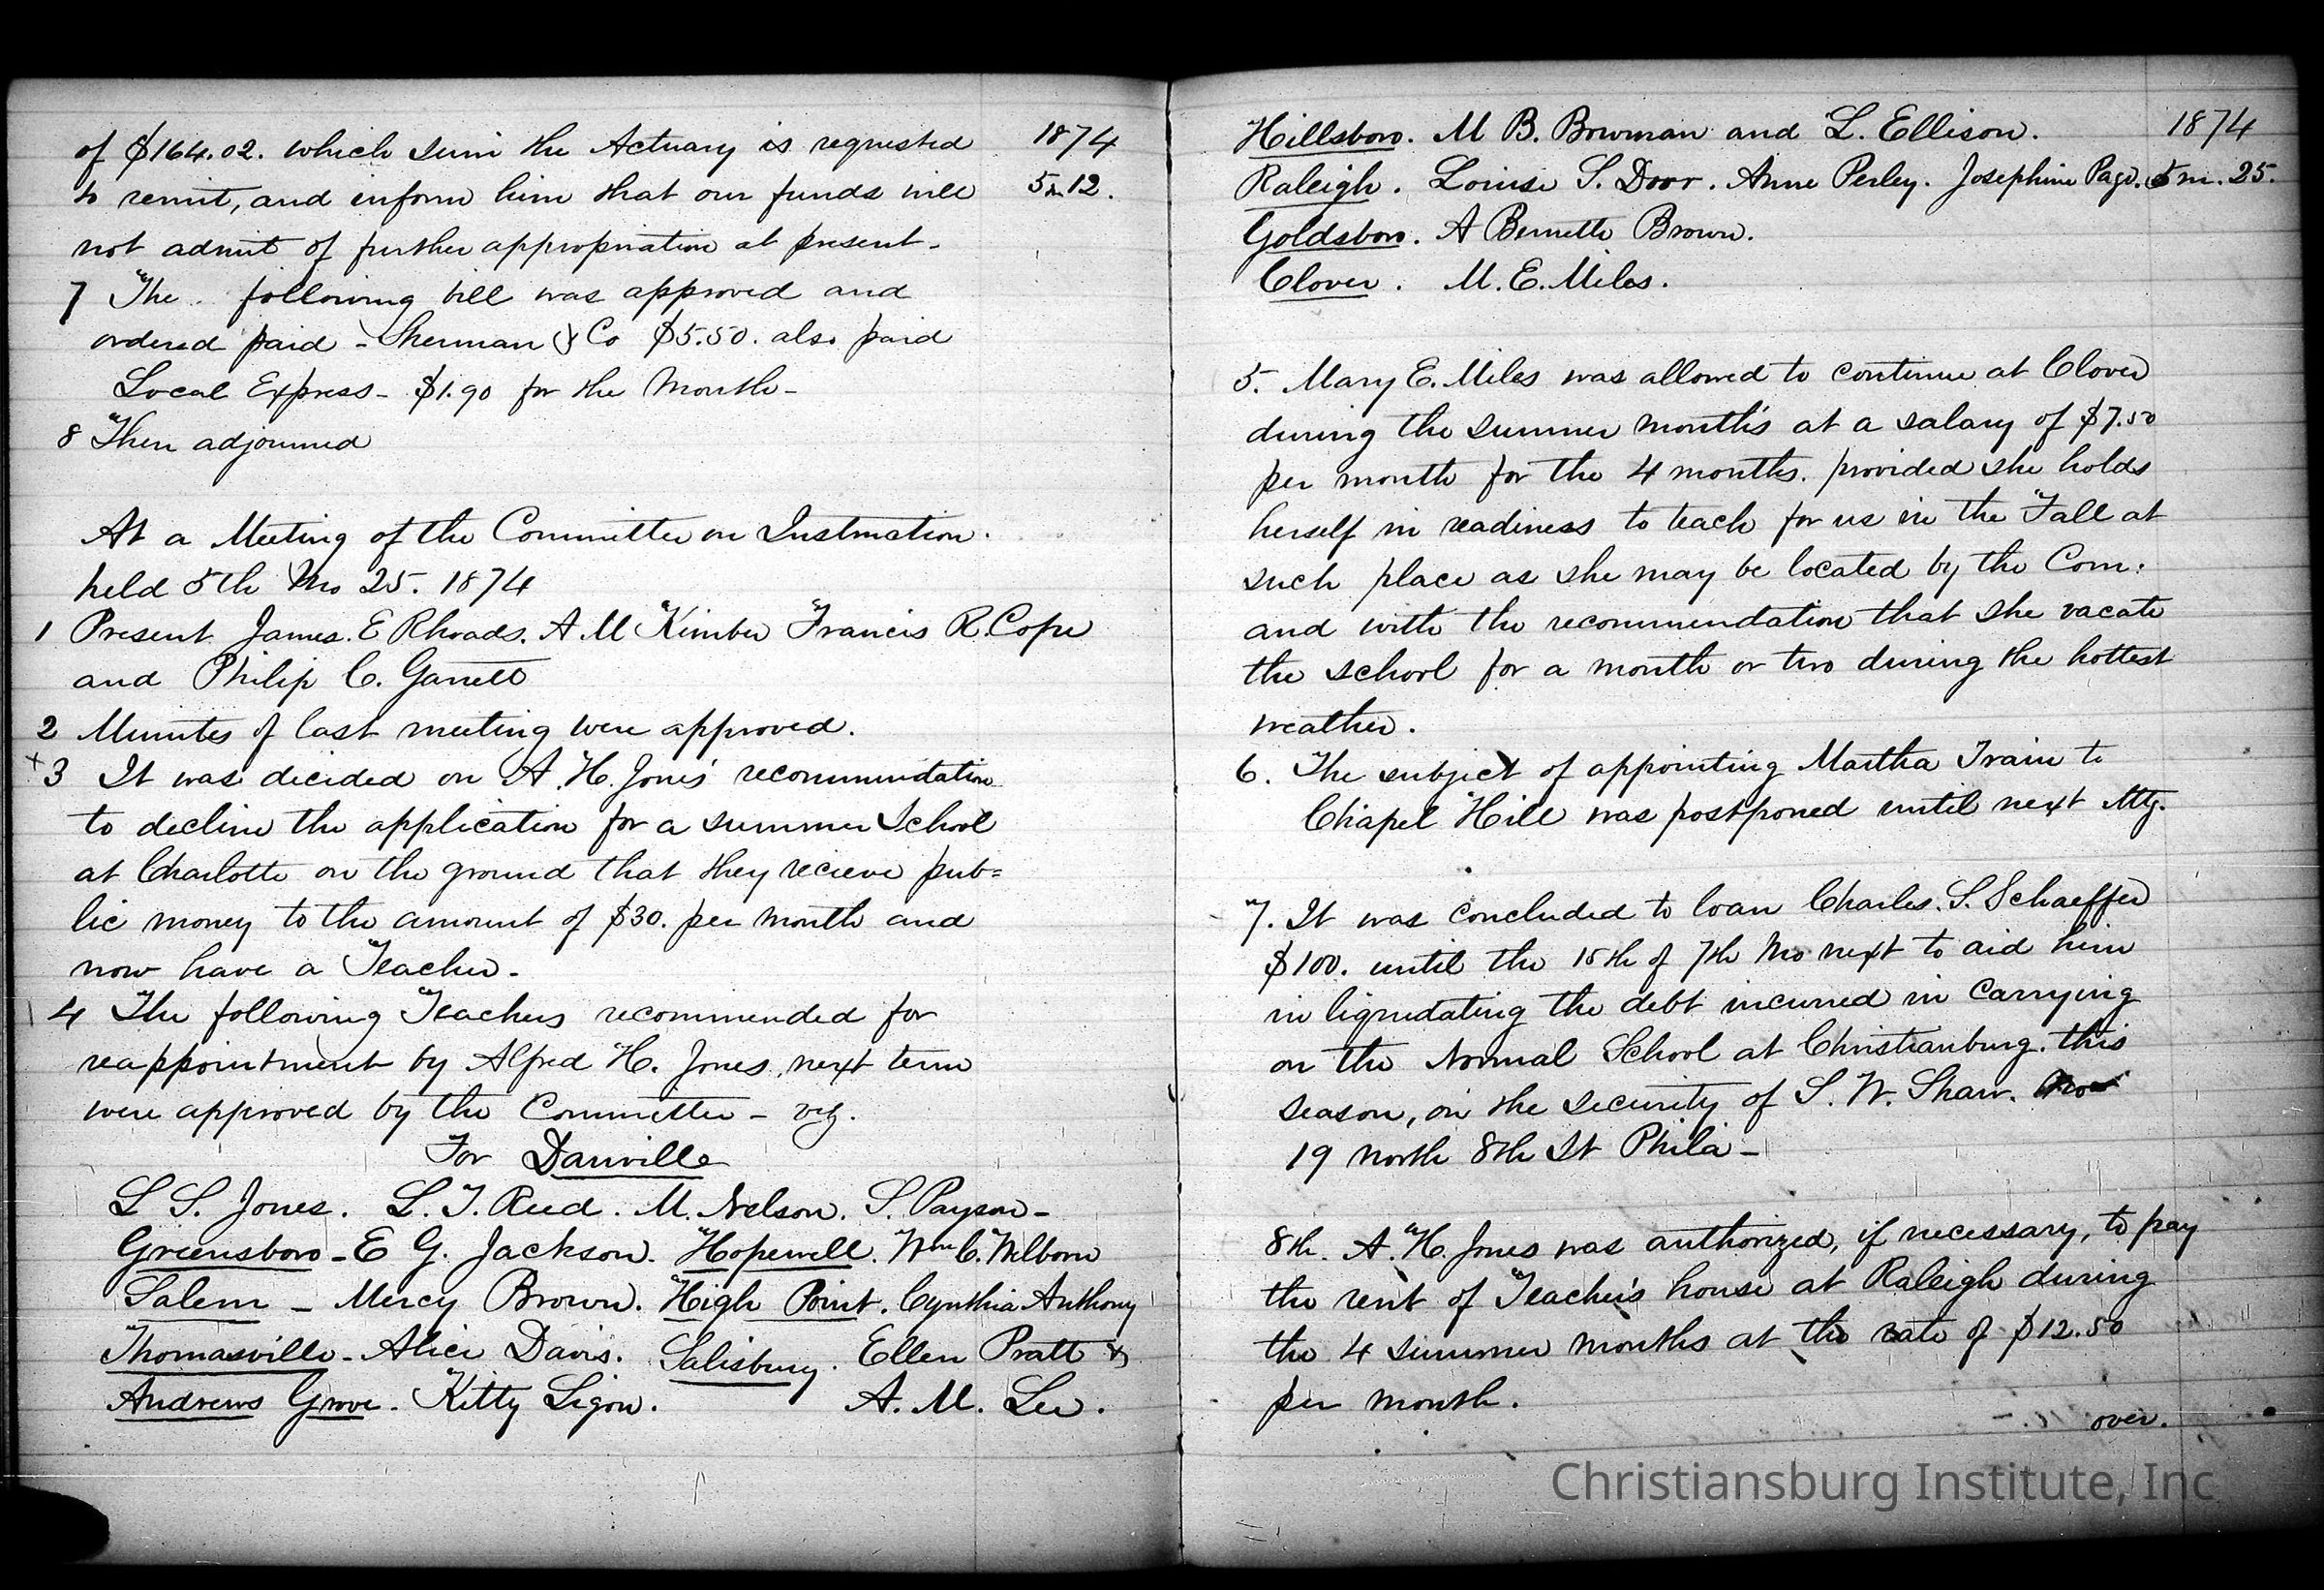 of $164.02. which sum the Actuary is requested
1874
to remit, and inform him that our funds will
5m 12.
not admit of further appropriation at present-
7 The following bill was approved and
ordered paid - Sherman & Co $5.50. also paid
Local Express - $1.90 for the Month-
8 Then adjourned
At a Meeting of the Committee on Instruction.
held 5th Mo 25. 1874
1 Present James. E Rhoads. A. M Kimber Francis R. Cope
and Philip C. Garrett
2 Minutes of last meeting were approved.
+3 It was decided on A. H. Jones' recommendation
to decline the application for a summer School
at Charlotte on the ground that they recieve pub=
lic money to the amount of $30. per month and
now have a Teacher.
4 The following Teachers recommended for
reappointment by Alfred H. Jones, next term
were approved by the Committee - viz.
For Danville
L S. Jones. L. T. Reed. M. Nelson. S. Payson-
Greensboro - E G. Jackson. Hopewell. Wm C. Welborn
Salem - Mercy Brown. High Point. Cynthia Anthony
Thomasville - Alice Davis. Salisbury. Ellen Pratt &
Andrews Grove. Kitty Ligon. A. M. Lee.
Hillsboro. M B. Bowman and L. Ellison.
1874
Raleigh. Louise S. Dorr. Anne Perley. Josephine Page.
5m. 25.
Goldsboro. A Bernette Brown.
Clover. M. E. Miles.
5. Mary E. Miles was allowed to continue at Clover
during the summer months at a salary of $7.50
per month for the 4 months. provided she holds
herself in readiness to teach for us in the Fall at
such place as she may be located by the Com:
and with the recommendation that she vacate
the school for a month or two during the hottest
weather.
6. The subject of appointing Martha Train to
Chapel Hill was postponed until next Mtg.
7. It was concluded to loan Charles. S. Schaeffer
$100. until the 15th of 7th Mo next to aid him
in liquidating the debt incurred in carrying
on the Normal School at Christianburg. this
season, on the security of S. W. Shaw.
19 north 8th St Phila-
8th. A. H. Jones was authorized, if necessary, to pay
the rent of Teacher's house at Raleigh during
the 4 summer months at the rate of $12.50
per month.
over.
Christiansburg Institute, Inc